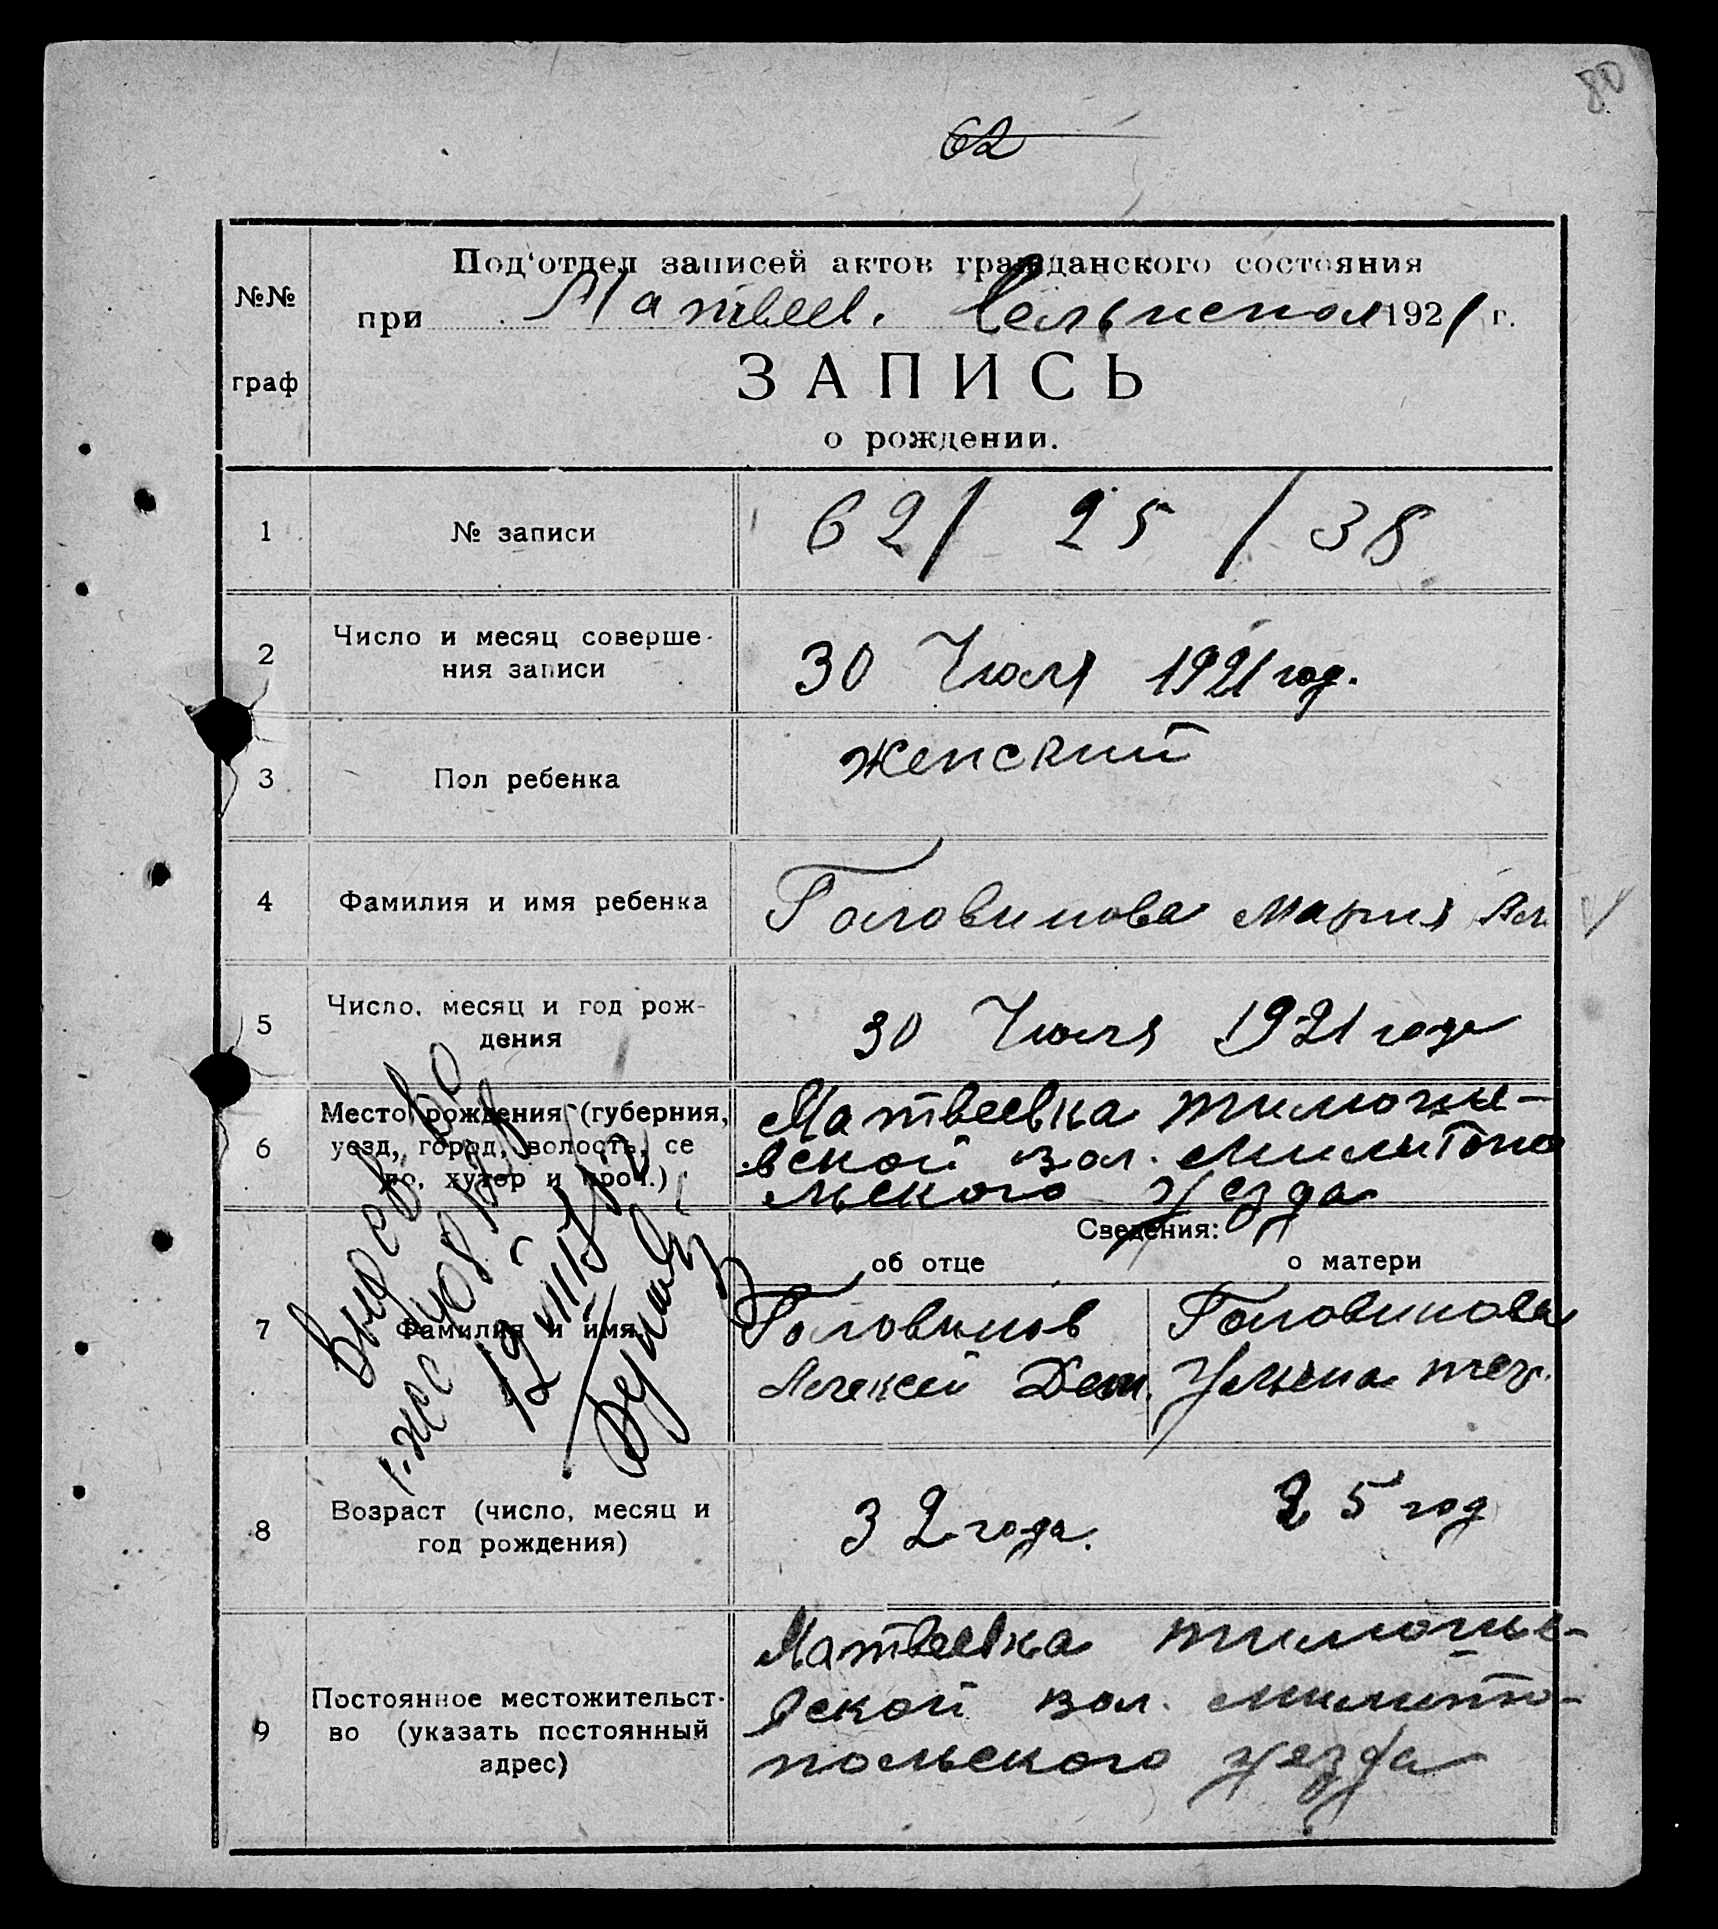 80
62
Под'отдел записей актов гражданского состояния
№№
граф
при Матвеев. Сельисполк 1921 г.
ЗАПИСЬ
о рождении.
1 № записи 62/ 25 / 38
2 Число и месяц соверше-
ния записи
30 Июля 1921 год.
3 Пол ребенка женский
4 Фамилия и имя ребенка Головинова Мария Ал.
5 Число, месяц и год рож-
дения
30 Июля 1921 года
6 Место рождения (губерния,
уезд, город, волость, се
ло, хутор и проч.)
Матвеевка тимоше-
вской вол. милитопо
льского уезда
Сведения:
об отце о матери
7 Фамилия и имя.
Головинов
Алексей Дем.
Головинова
Ульяна
8 Возраст (число, месяц и
год рождения)
32 года. 25 год
9 Постоянное местожительст-
во (указать постоянный
адрес)
Матвеевка тимоше-
вской вол. милито-
польского уезда